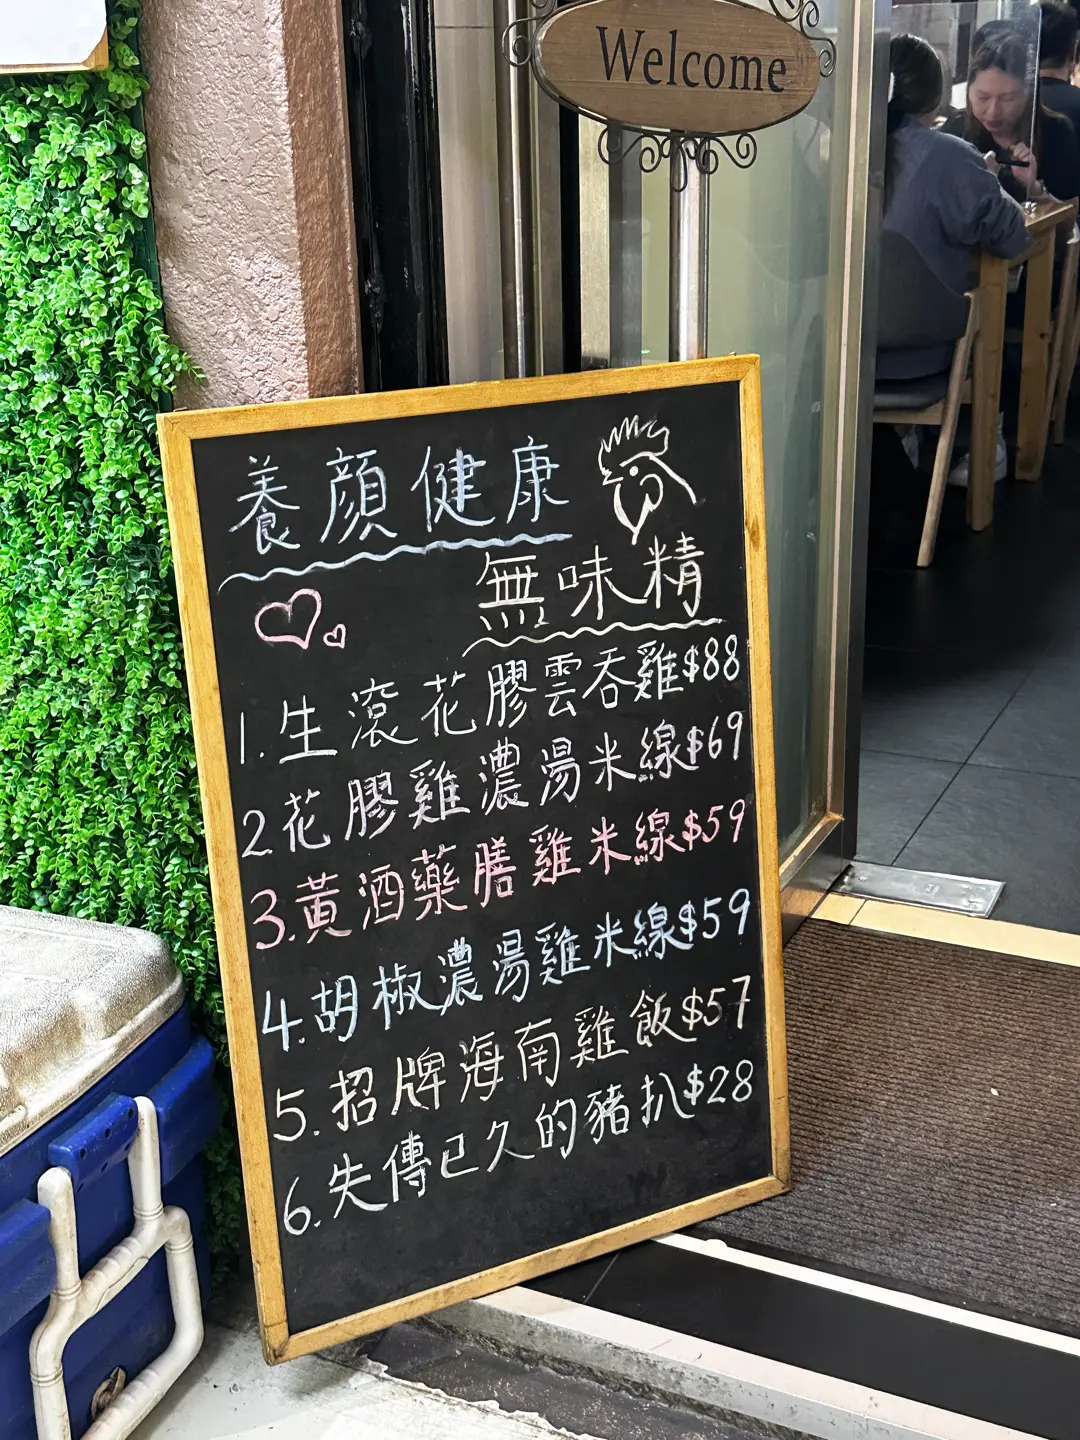 Welcome
養顏健康
無味精
1.生滾花膠雲吞雞$88
2花膠雞濃湯米線$69
3.黃酒藥膳雞米線$59
4.胡椒濃湯雞米線$59
5.招牌海南雞飯$57
6.失傳已久的豬扒$28